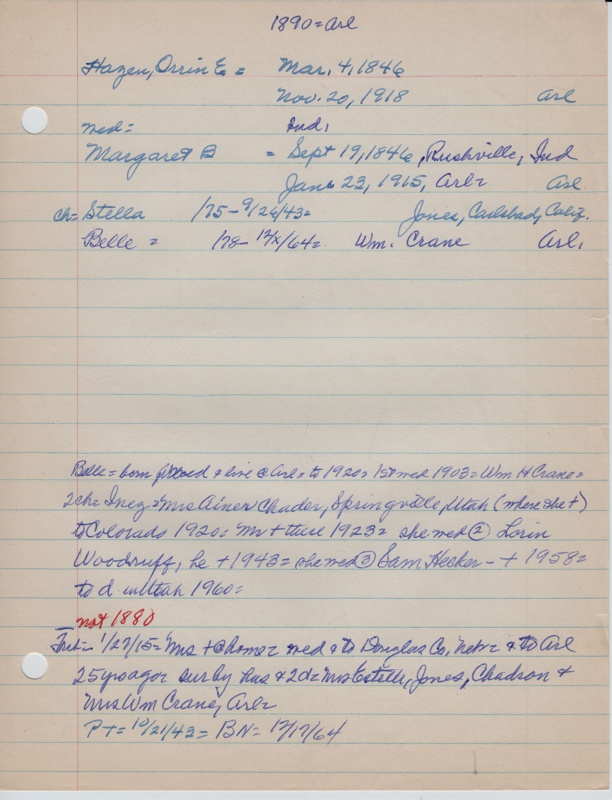 1890=Arl
Hazen, Orrin E = Mar. 4, 1846
Nov. 20, 1918 Arl
med= Ind,
Margaret B = Sept 19, 1846, Rushville, Ind
Jan 23, 1915, Arl= Arl
ch= Stella /75-9/26/43= Jones, Carlsbad, Calif.
Belle = /78- 12/x/64= Wm. Crane Arl,
Belle = born & live @ Arl = to 1920= 1st med 1903= Wm H Crane=
2ch= Inez= Mrs Ainer Chader, Springville, Utah (where she +)
to Colorado 1920= Mr + there 1923= she med ② Lorin
Woodruff, he + 1943= she med ③ Sam Hecker - + 1958=
to d in Utah 1960=
not 1880
1/27/15= Mrs + @ home= med & to Douglas Co, Nebr & to Arl
25 yrs ago= sur by hus & 2d= Mrs Estelle, Jones, Chadron &
Mrs Wm Crane, Arl=
PT= 10/21/43= BN= 12/17/64